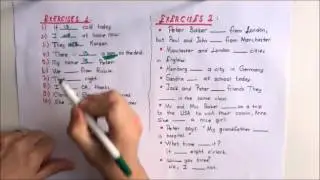 EXERCISES 1:
1) It is cold today
2) I at home now
3) They Korean.
4) There is on the desk.
5) My name is Peter.
6) We from Russia.
7) right.
8) I OK, thanks.
9)
10) She
EXERCISES 2:
• Peter Baker from London,
but Paul and John from Manchester
• Manchester and London cities
in England.
• Hamburg a city in Germany
• Sandra at school today.
• Jack and Peter friends. They
in the same class.
• Mr and Mrs on a trip
to the USA to visit their cousin
She a nice girl.
• Peter says: "My grandfather is
in hospital.
• What time it?
It eight o'clock.
• you tired
we, ok.